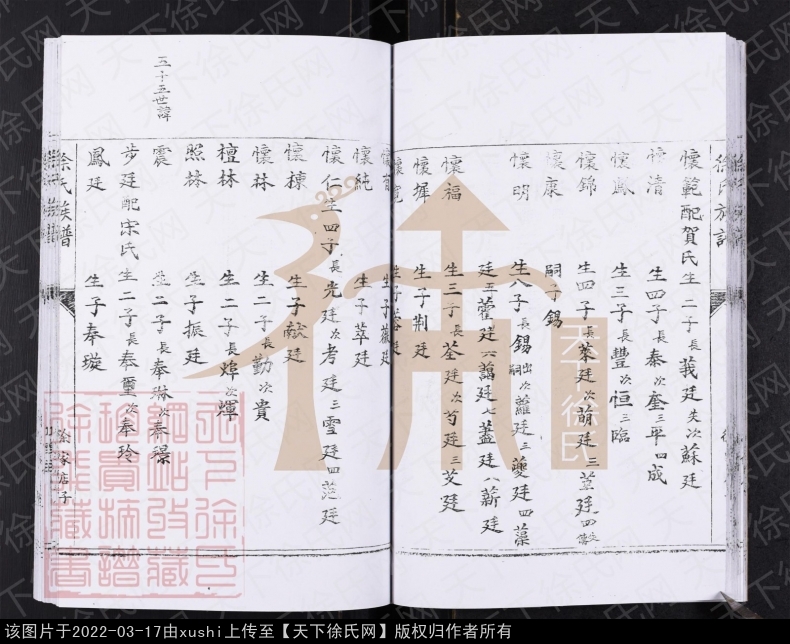 徐氏族譜
懷範配賀氏生二子長莪廷失次蘇廷
懷清 生四子長泰次奎三平四成
懷鳳 生三子長豐次恒三臨
懷錦 生四子長萊廷次萠廷三萱廷四
懷康 嗣子錫
懷明 生八子長錫出嗣次蘿廷三夔廷四藻
廷五藿廷六藹廷七藎廷八薪廷
懷福 生三子長荃廷次芍廷三芰廷
懷墀 生子荆廷
懷寬
懷純 生子萃廷
懷仁生四子長光廷次考廷三雪廷四范廷
懷棟 生子献廷
懷林 生二子長勤次貴
檀林 生二子長煒次輝
照林 生子振廷
震 生二子長奉琳次奉璟
步廷配宋氏生二子長奉璽次奉玲
鳳廷 生子奉璇
三十五世諱
徐氏族譜
徐家店子
天下徐氏
该图片于2022-03-17由xushi上传至【天下徐氏网】版权归作者所有